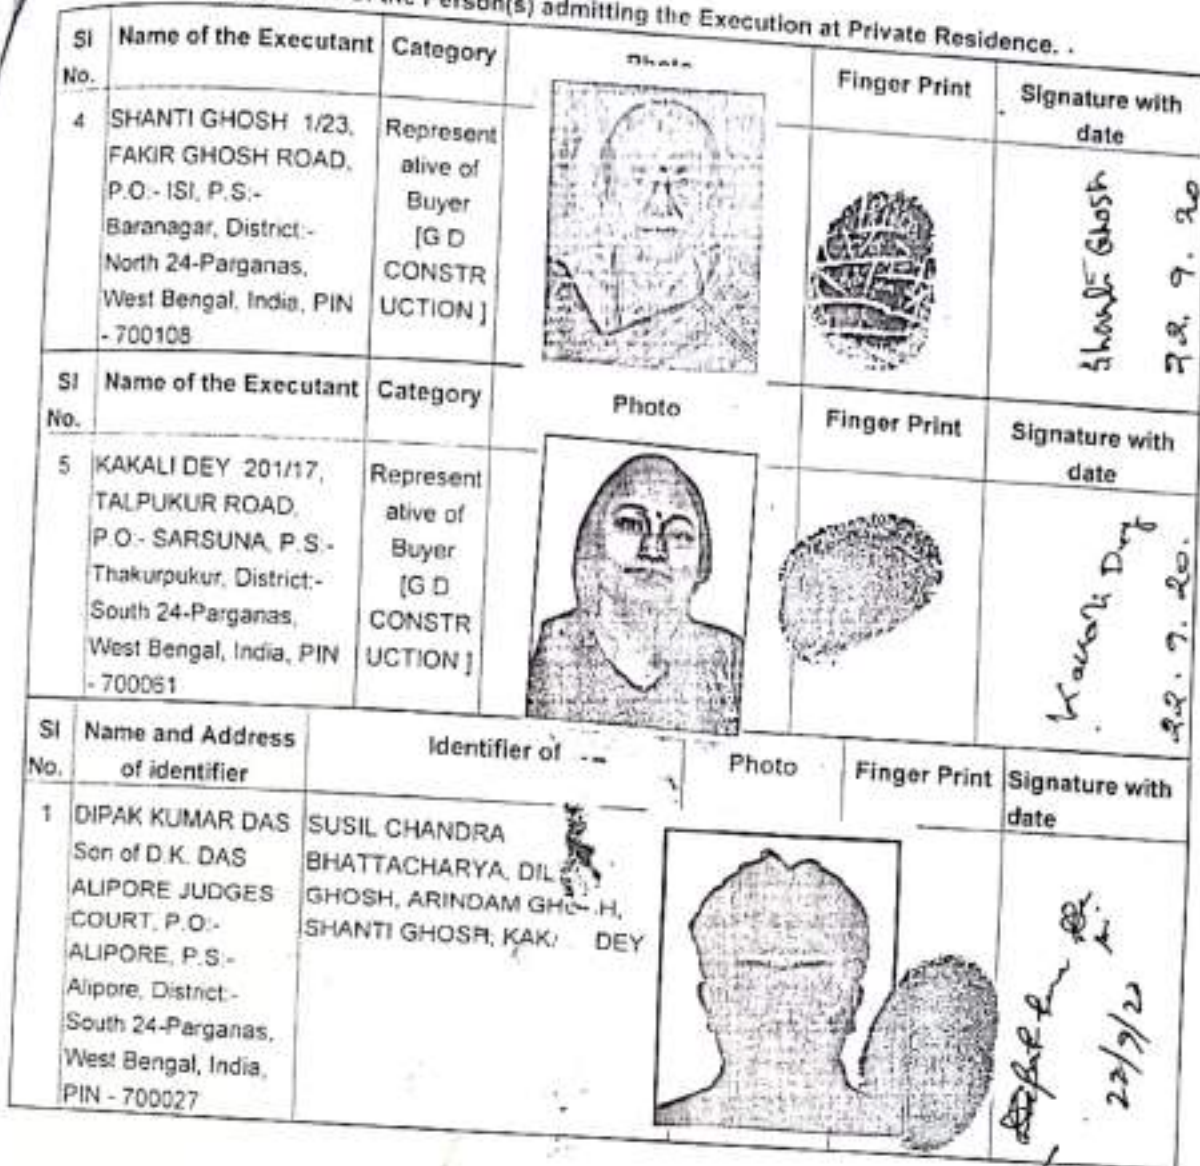 the Person(s) admitting the Execution at Private Residence. .
Sl No. Name of the Executant Category Photo Finger Print Signature with date
4 SHANTI GHOSH 1/23,
FAKIR GHOSH ROAD,
P.O.- ISI, P.S.-
Baranagar, District:-
North 24-Parganas,
West Bengal, India, PIN
- 700108
Represent
ative of
Buyer
[G D
CONSTR
UCTION ]
Shanti Ghosh
22. 9. 20
Sl No. Name of the Executant Category Photo Finger Print Signature with date
5 KAKALI DEY 201/17,
TALPUKUR ROAD,
P.O.- SARSUNA, P.S.-
Thakurpukur, District:-
South 24-Parganas,
West Bengal, India, PIN
- 700061
Represent
ative of
Buyer
[G D
CONSTR
UCTION ]
Kakali Dey
22. 9. 20.
Sl No. Name and Address of identifier Identifier of Photo Finger Print Signature with date
1 DIPAK KUMAR DAS
Son of D.K. DAS
ALIPORE JUDGES
COURT, P.O:-
ALIPORE, P.S.-
Alipore, District:-
South 24-Parganas,
West Bengal, India,
PIN - 700027
SUSIL CHANDRA
BHATTACHARYA, DIL
GHOSH, ARINDAM
SHANTI GHOSH, DEY
22/9/20